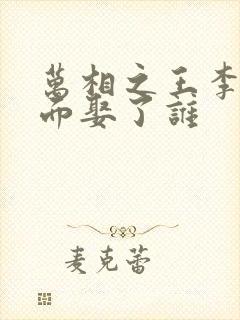 萬相之王李
而娶了誰
麦克蕾